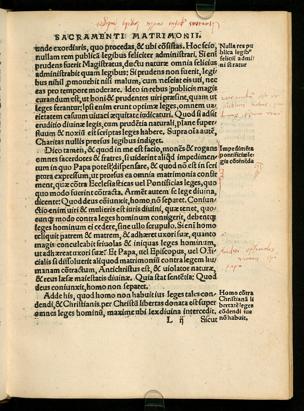 SACRAMENTI MATRIMONII.
unde exordiaris, quo procedas, & ubi cōsistas. Hoc scio,
nullam rem publicā legibus feliciter administrari. Si eni
prudens fuerit Magistratus, ductu naturæ omnia felicius
administrabit quam legibus: Si prudens non fuerit, legi-
bus nihil
eas pro tempore moderare. Ideo in rebus publicis magis
curandum est, ut boni & prudentes uiri præsint, quam ut
leges ferantur: Ipsi enim erunt optimæ leges, omnem ua-
rietatem casuum uiuaci æquitate iudicaturi. Quod si adsit
eruditio diuinæ legis, cum prudētia naturali, plane super-
fluum & noxiū est scriptas leges habere. Supra oīa autē,
Charitas nullis prorsus legibus indiget.
Dico tamen, & quod in me est facio, monēs & rogans
omnes sacerdotes & fratres, si uiderint aliqd impedimen-
tum in quo Papa potest dispensare, & quod nō est in scri
ptura expressum, ut prorsus ea omnia matrimonia confir
ment, quæ cōtra Ecclesiasticas uel Pontificias leges, quo
quo modo fuerint cōtracta. Armēt autem se lege diuina,
dicente: Quod deus cōiunxit, homo nō separet. Coniun-
ctio enim uiri & mulieris est iuris diuini, quæ tenet, quo-
cunq; modo contra leges hominum contigerit, debentq;
leges hominum ei cedere, sine ullo scrupulo. Si enī homo
relinquit patrem & matrem, & adhæret uxori suæ, quanto
magis conculcabit friuolas & iniquas leges hominum,
ut adhæreat uxori suæ? Et Papa, uel Episcopus, uel Offi-
cialis si dissoluerit aliquod matrimoniū contra legem hu-
manam cōtractum, Antichristus est, & uiolator naturæ,
& reus læsæ maiestatis diuinæ. Quia stat sentētia: Quod
deus coniunxit, homo non separet.
Adde his, quod homo non habuit ius leges tales con-
dendi, & Christianis per Christū libertas donata est super
omnes leges hominū, maxime ubi lex diuina intercedit.
L ij Sicut
Nulla res pu
blica legib⁹
felicit admi
nistratur
Impedimēta
pontificiæ le-
gis cōfodiēda
Homo cōtra
Christianā li
bertatē leges
cōdendi ius
nō habuit.